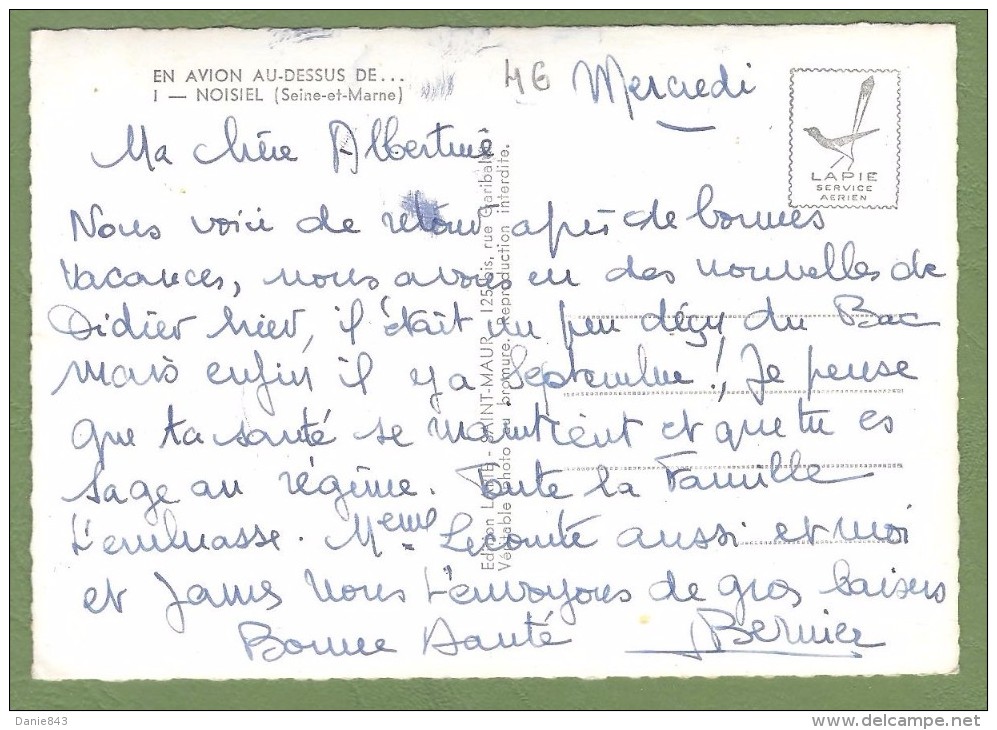 EN AVION AU-DESSUS DE...
1 — NOISIEL (Seine-et-Marne)
4E
Mercredi
LAPIE
SERVICE
AERIEN
Ma chère Albertine
Nous voici de retour après de bonnes
vacances, nous avons eu des nouvelles de
Didier hier, il était un peu déçu du Bac
mais enfin il y a Septembre!, Je pense
que ta santé se maintient et que tu es
sage au régime. Toute la Famille
t'embrasse. Meme Lecomte aussi et moi
et James nous t'envoyons de gros baisers
Bonne Santé Bernier
Edition LAPIE - SAINT-MAUR, 125 bis, rue Garibaldi
Véritable photo au bromure. Reproduction interdite.
Danie843
www.delcampe.net